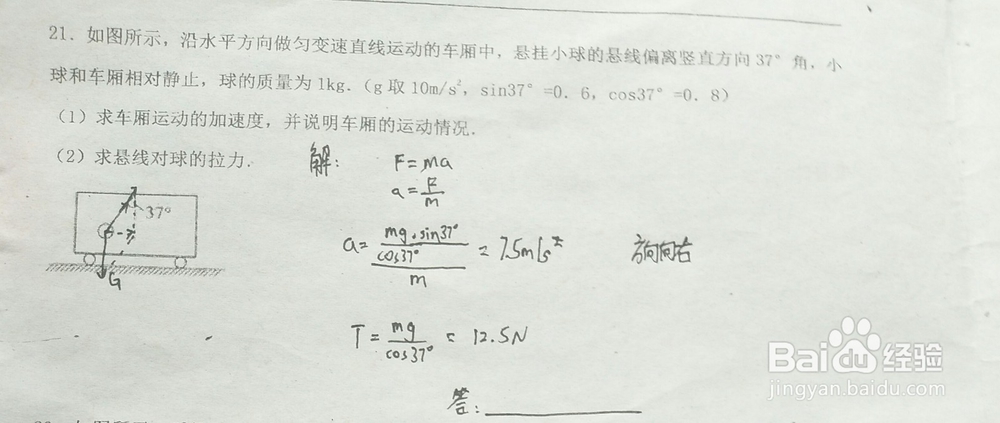 21. 如图所示，沿水平方向做匀变速直线运动的车厢中，悬挂小球的悬线偏离竖直方向 37° 角，小
球和车厢相对静止，球的质量为 1kg.（g 取 10m/s², sin37° =0. 6, cos37° =0. 8）
（1）求车厢运动的加速度，并说明车厢的运动情况.
（2）求悬线对球的拉力.
解: F=ma
a=F/m
37°
a= (mg·sin37°/cos37°)/m = 7.5m/s² 方向向右
G
T = mg/cos37° = 12.5N
答:
Baidu经验
jingyan.baidu.com